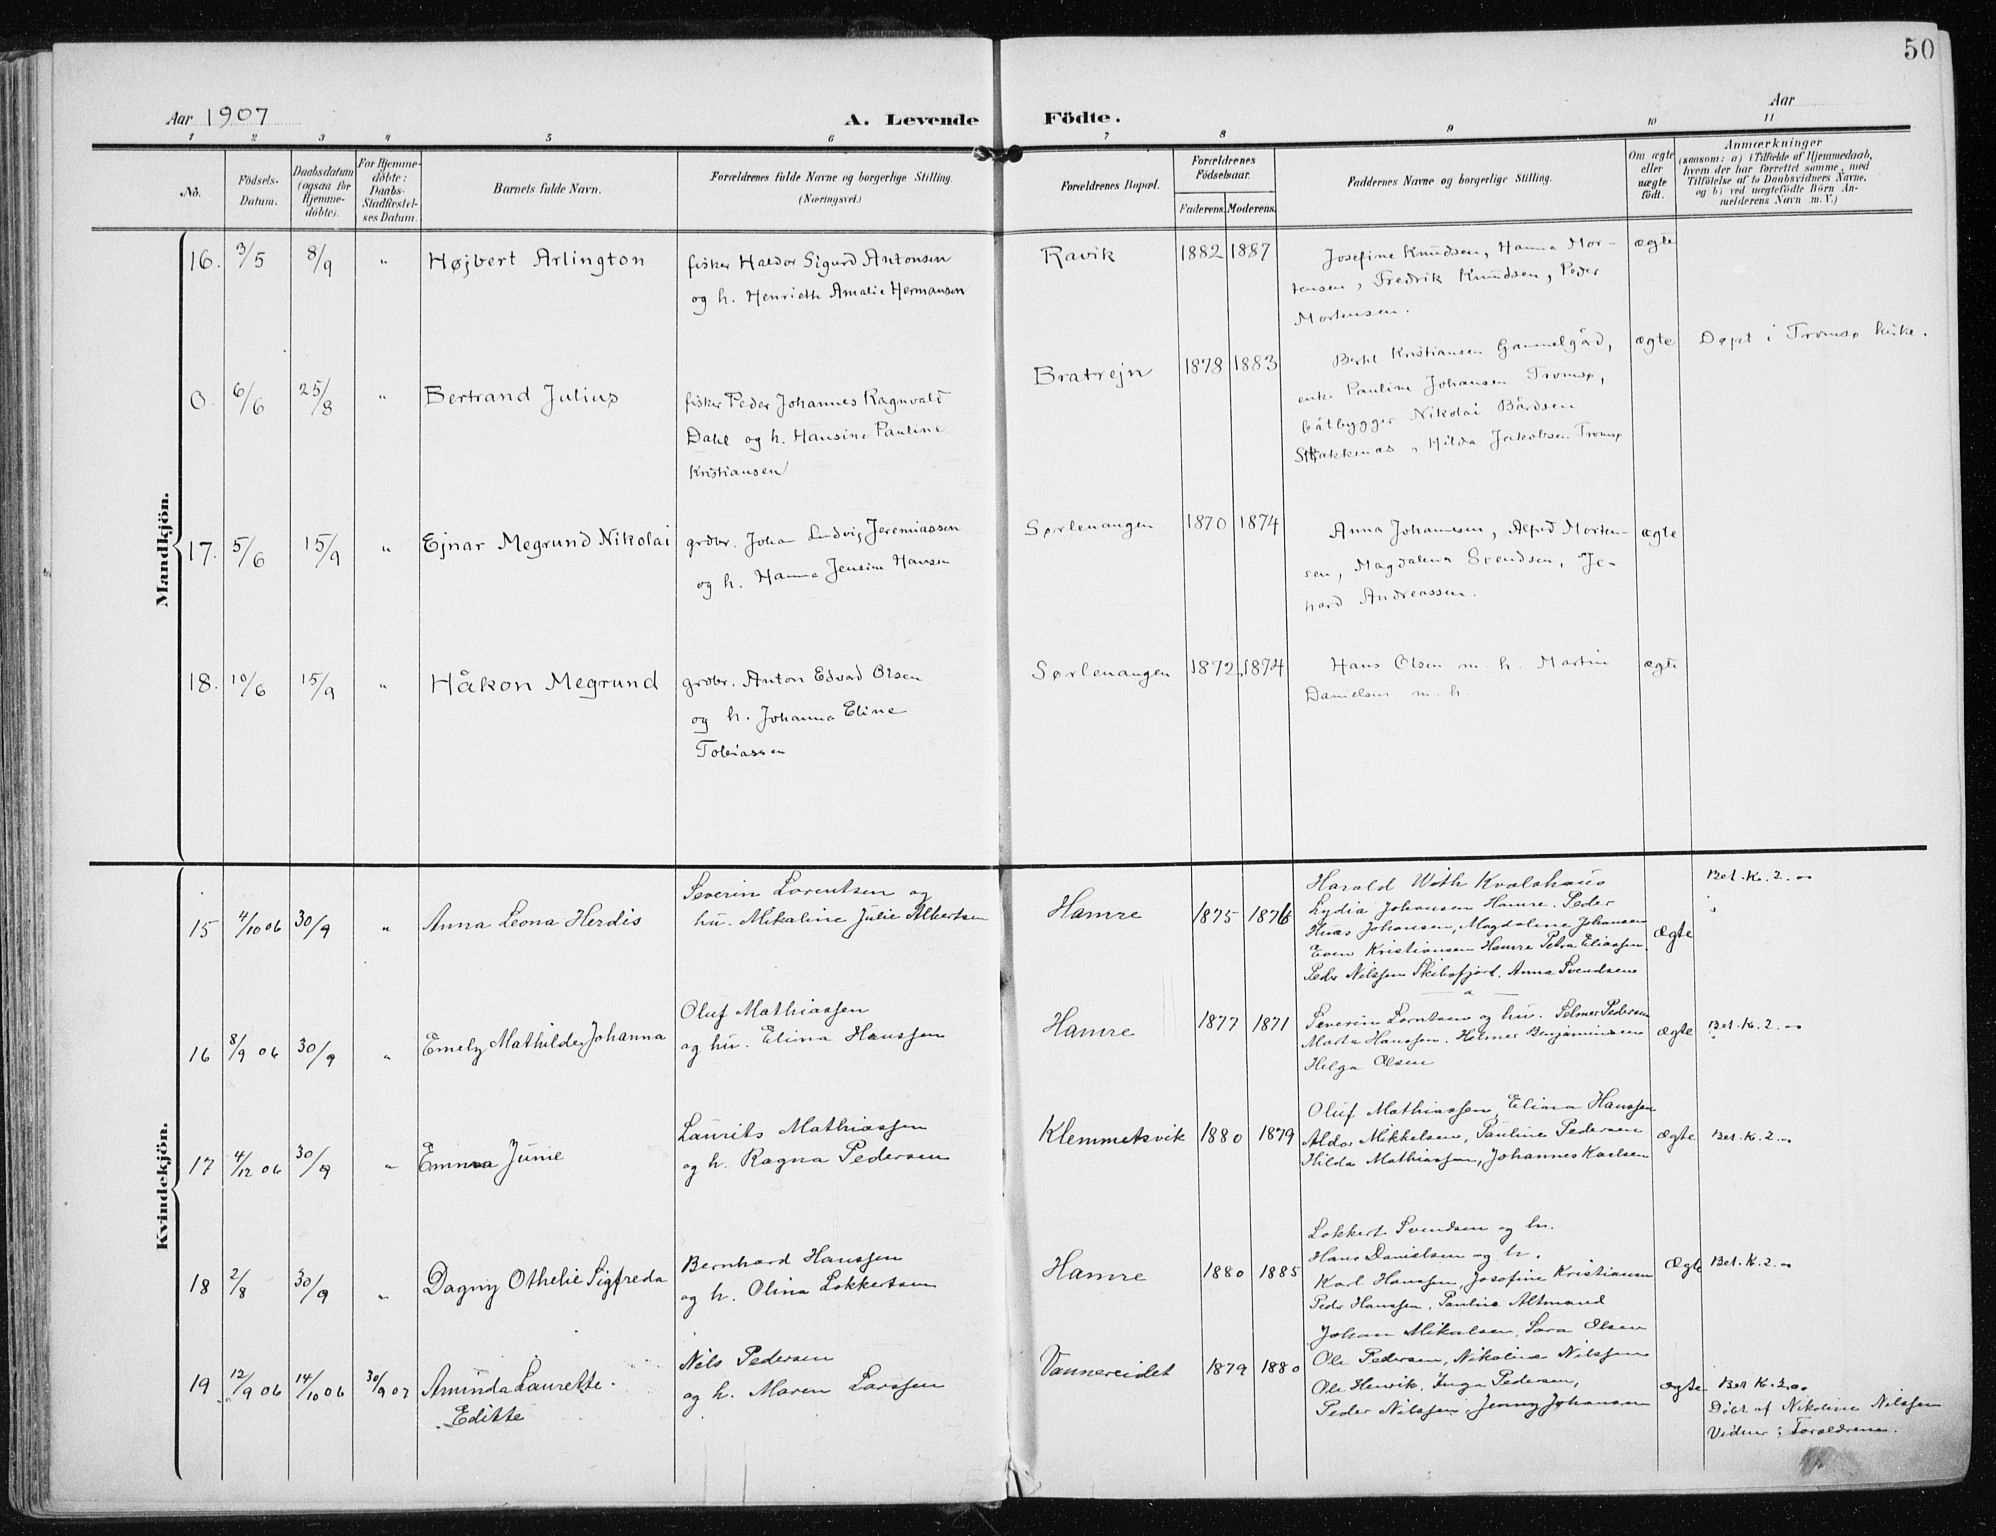 50
Aar 1907
A. Levende Födte.
Aar
1 2 3 4 5 6 7 8 9 10 11
No.
Födsels-
Datum.
Daabsdatum
(ogsaa for
Hjemme-
döbte).
For Hjemme-
döbte:
Daabs-
Stadfæstel-
ses Datum.
Barnets fulde Navn.
Forældrenes fulde Navne og borgerlige Stilling
(Næringsvei.)
Forældrenes Bopæl.
Forældrenes
Födselsaar.
Faderens. Moderens.
Faddernes Navne og borgerlige Stilling.
Om ægte
eller
uægte
födt.
Anmærkninger
(saasom: a) i Tilfælde af Hjemmedaab,
hvem der har forrettet samme, med
Tilföielse af to Daabsvidners Navne,
og b) ved uægtefödte Börn An-
melderens Navn m. V.)
Mandkjön.
16. 3/5 8/9 " Højbert Arlington
fisker Haldor Sigurd Antonsen
og h. Henriette Amalie Hermansen
Ravik 1882 1887
Josefine Knudsen, Hanna Mor-
tensen, Fredrik Knudsen, Peder
Mortensen.
ægte
0. 6/6 25/8 " Bertrand Julius
fisker Peder Johannes Ragnvald
Dahl og h. Hansine Pauline
Kristiansen
Bratrejn 1878 1883
Bertel Kristiansen Gammelgård,
enke Pauline Johansen Tromsø,
båtbygger Nikolai Bårdsen
Stakkenæs, Hilda Jakobsen Tromsø
ægte
Døpt i Tromsø kirke.
17. 5/6 15/9 " Ejnar Megrund Nikolai
grdbr. Johan Ludvig Jeremiassen
og h. Hanna Jensine Hansen
Sørlenangen 1870 1874
Anna Johannesen, Alfred Morten-
sen, Magdalena Svendsen, Je-
hard Andreassen.
ægte
18. 10/6 15/9 " Håkon Megrund
grdbr. Anton Edvard Olsen
og h. Johanna Eline
Tobiassen
Sørlenangen 1872 1874
Hans Olsen m. h. Martin
Danielsen m. h.
ægte
Kvindekjön.
15 4/10 06 30/9 " Anna Leona Herdis
Severin Lorentsen og
hu. Mikaline Julie Albertsen
Hamre 1875 1876
Harald With Kvalshaus
Lydia Johansen Hamre. Peder
Johansen, Magdalene Johansen
Even Kristiansen Hamre Petra Eliassen.
Peder Nilssen Skibsfjord. Anna Svendsen
ægte
Bet. K. 2.00
16 8/9 06 30/9 " Emely Mathilde Johanna
Oluf Mathiassen
og hu. Elina Hanssen
Hamre 1877 1871
Severin Lorntsen og hu. Selmer Pedersen
Marta Hanssen. Helmer Benjaminsen
Helga Olsen
ægte
Bet. K. 2.00
17 4/12 06 30/9 " Emma Junie
Laurits Mathiassen
og h. Ragna Pedersen
Klemmetsvik 1880 1879
Oluf Mathiassen, Elina Hanssen
Aldor Mikkelsen, Pauline Pedersen
Hilda Mathiassen, Johannes Karlsen
ægte
Bet. K. 2.00
18 2/8 30/9 " Dagny Othelie Sigfreda
Bernhard Hanssen
og h. Olina Lokkertsen
Hamre 1880 1885
Lokkert Svendsen og hu.
Hans Danielsen og h.
Karl Hanssen, Josefine Kristiansen
Peder Hanssen, Pauline Altmand
ægte
Bet. K. 2.00
19 12/9 06 14/10 06 30/9 07 Aminda Laurette
Editte
Nils Pedersen
og h. Maren Larssen
Vannereidet 1879 1880
Johan Mikalsen, Sara Olsen
Ole Pedersen, Nikoline Nilssen
Ole Henrik, Inga Pedersen,
Peder Nilssen, Jenny Johansen
ægte
Bet K. 2.00
Döbt af Nikoline Nilssen
Vidner: Forældrene.